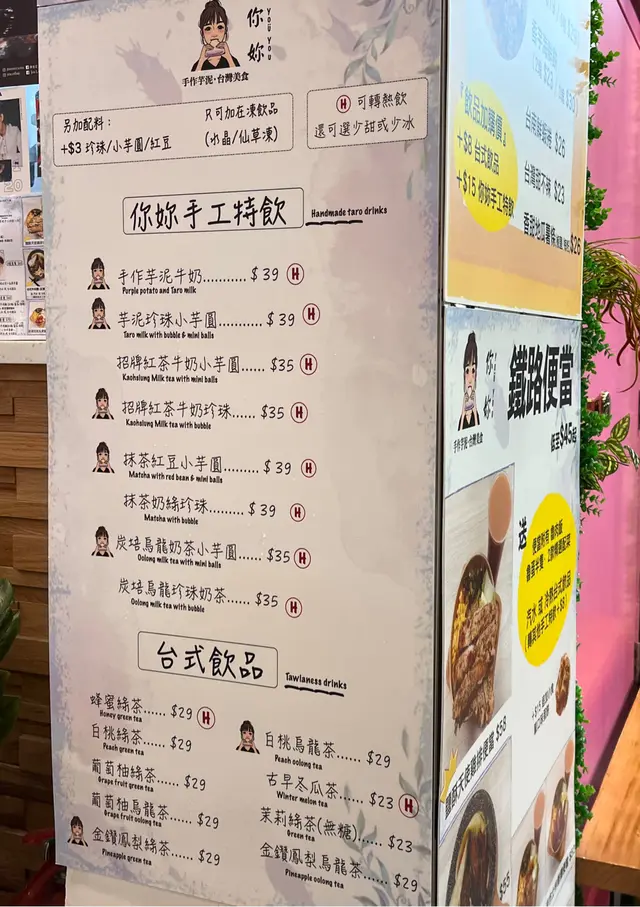 你妳
YOU YOU
手作芋泥·台灣美食
另加配料：
只可加在凍飲品
+$3 珍珠/小芋圓/紅豆
(水晶/仙草凍)
H 可轉熱飲
還可選少甜或少冰
你妳手工特飲
Handmade taro drinks
手作芋泥牛奶........... $39 H
Purple potato and Taro milk
芋泥珍珠小芋圓........... $39 H
Taro milk with bubble & mini balls
招牌紅茶牛奶小芋圓...... $35 H
Kaohsiung Milk tea with mini balls
招牌紅茶牛奶珍珠...... $35 H
Kaohsiung Milk tea with bubble
抹茶紅豆小芋圓......... $39 H
Matcha with red bean & mini balls
抹茶奶綠珍珠......... $39 H
Matcha with bubble
炭培烏龍奶茶小芋圓...... $35 H
Oolong milk tea with mini balls
炭培烏龍珍珠奶茶...... $35 H
Oolong milk tea with bubble
台式飲品
Tawianess drinks
蜂蜜綠茶...... $29 H
Honey green tea
白桃綠茶...... $29
Peach green tea
葡萄柚綠茶...... $29
Grape fruit green tea
葡萄柚烏龍茶...... $29
Grape fruit oolong tea
金鑽鳳梨綠茶...... $29
Pineapple green tea
白桃烏龍茶...... $29
Peach oolong tea
古早冬瓜茶...... $23 H
Winter melon tea
茉莉綠茶(無糖)...... $23
Green tea
金鑽鳳梨烏龍茶...... $29
Pineapple oolong tea
『飲品加購價』
+$8 台式飲品
+$15 你妳手工特飲
$26
$23
$26
你妳
手作芋泥·台灣美食
鐵路便當
低至$45起
送
汽水 或 冷熱台式飲品
$58